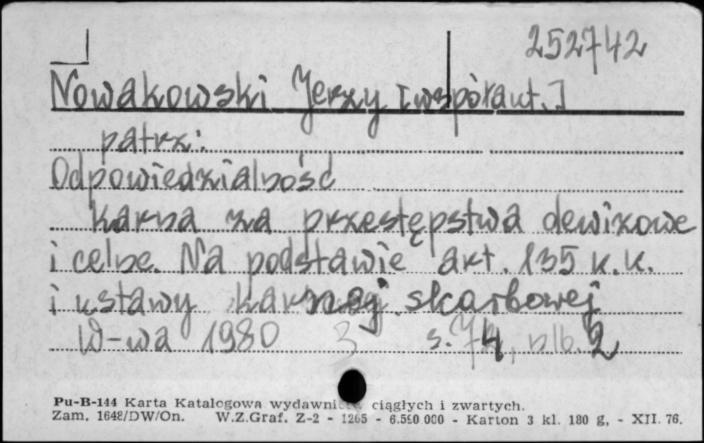 252742
Nowakowski Jerzy [współaut.]
patrz:
Odpowiedzialność
karna za przestępstwa dewizowe
i celne. Na podstawie art. 135 k.k.
i ustawy karnej skarbowej
W-wa 1980 3 s. 74, nlb. 2
Pu-B-144 Karta Katalogowa wydawnictw ciągłych i zwartych.
Zam. 1648/DW/On. W.Z.Graf. Z-2 - 1265 - 6.590 000 - Karton 3 kl. 180 g, - XII. 76.